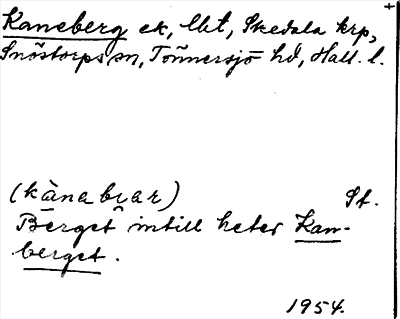 Kaneberg ek, Ubt, Skedala krp,
Snöstorps sn, Tönnersjö hd, Hall. l.
(kànabrar) St.
Berget intill heter Kan-
berget.
1954.